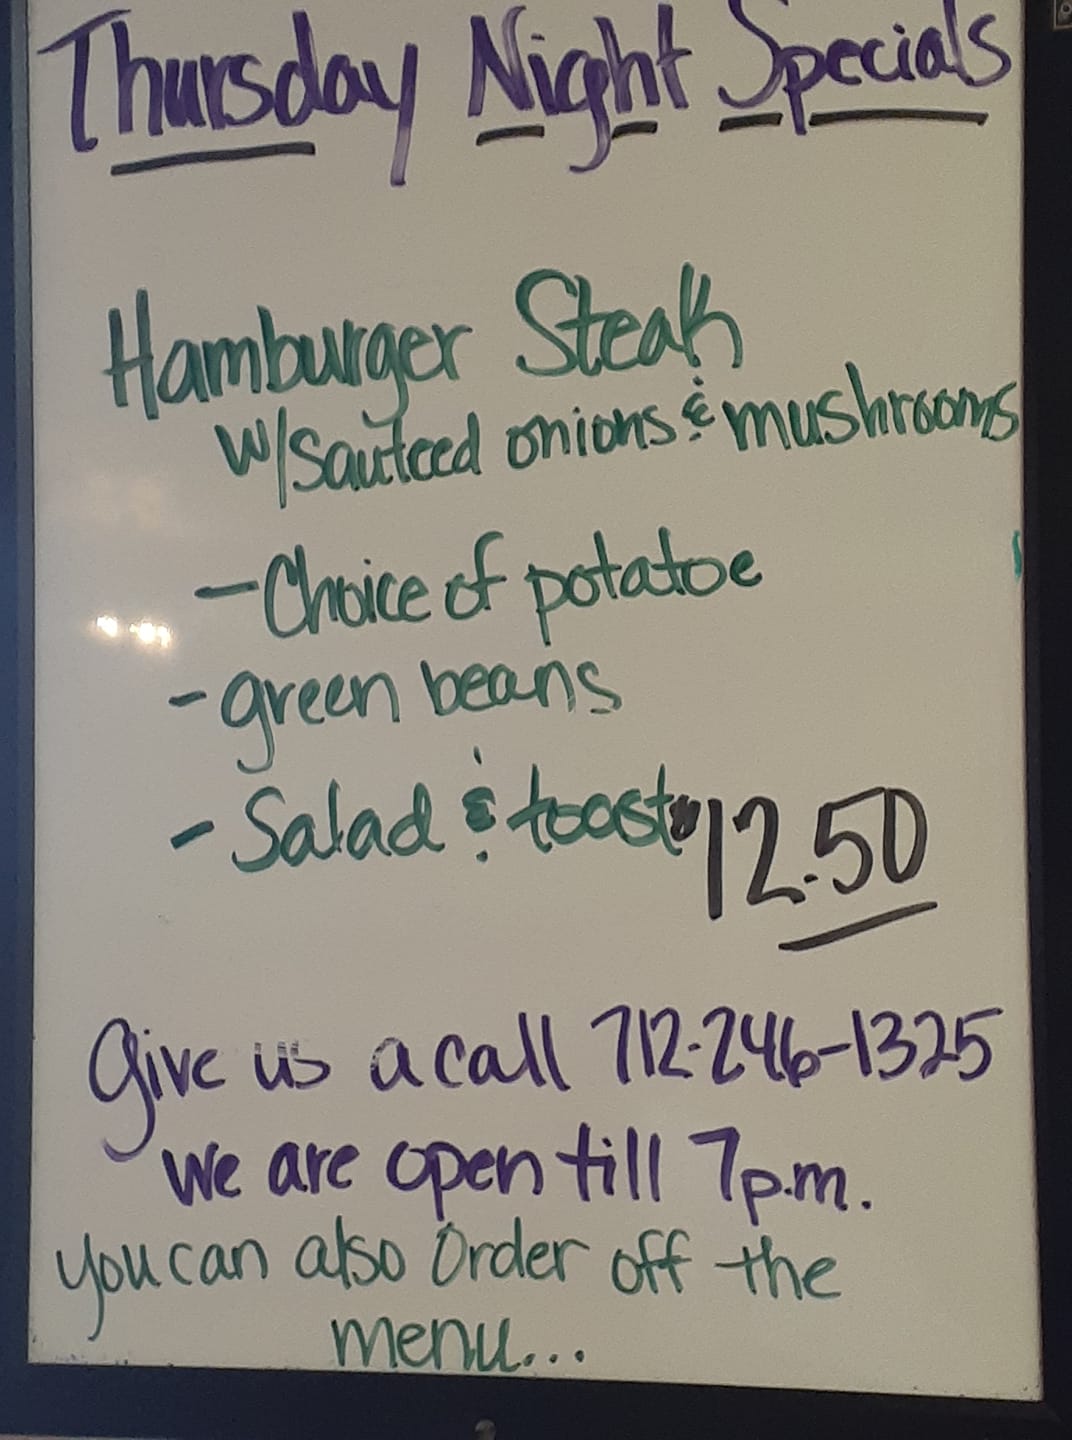 Thursday Night Specials
Hamburger Steak
w/Sauteed onions & mushrooms
- Choice of potatoe
- green beans
- Salad & toast $12.50
Give us a call 712-246-1325
we are open till 7p.m.
you can also order off the
menu...